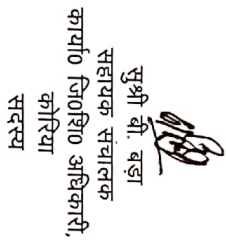 सुश्री बी. बड़ा
सहायक संचालक
कार्या० जि०शि० अधिकारी,
कोरिया
सदस्य